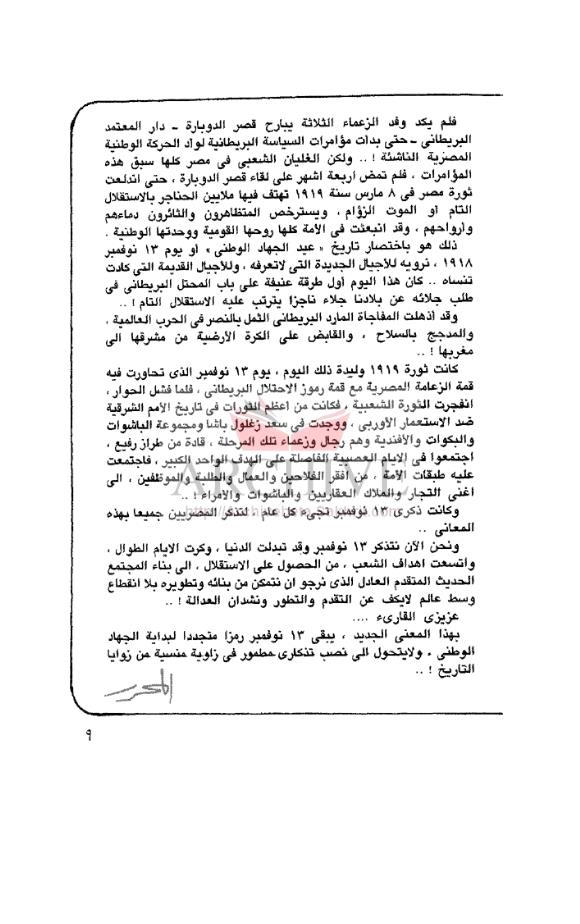 فلم يكد وفد الزعماء الثلاثة يبارح قصر الدوبارة - دار المعتمد
البريطانى - حتى بدات مؤامرات السياسة البريطانية لواد الحركة الوطنية
المصرية الناشئة ! .. ولكن الغليان الشعبى فى مصر كلها سبق هذه
المؤامرات ، فلم تمض اربعة اشهر على لقاء قصر الدوبارة ، حتى اندلعت
ثورة مصر فى ٨ مارس سنة ١٩١٩ تهتف فيها ملايين الحناجر بالاستقلال
التام او الموت الزؤام ، ويسترخص المتظاهرون والثائرون دماءهم
وارواحهم ، وقد انبعثت فى الأمة كلها روحها القومية ووحدتها الوطنية .
ذلك هو باختصار تاريخ « عيد الجهاد الوطنى » او يوم ١٣ نوفمبر
١٩١٨ ، نرويه للأجيال الجديدة التى لاتعرفه ، وللأجيال القديمة التى كادت
تنساه .. كان هذا اليوم أول طرقة عنيفة على باب المحتل البريطانى فى
طلب جلائه عن بلادنا جلاء ناجزا يترتب عليه الاستقلال التام ! ..
وقد اذهلت المفاجاة المارد البريطانى الثمل بالنصر فى الحرب العالمية ،
والمدجج بالسلاح ، والقابض على الكرة الأرضية من مشرقها الى
مغربها ! ..
كانت ثورة ١٩١٩ وليدة ذلك اليوم ، يوم ١٣ نوفمبر الذى تحاورت فيه
قمة الزعامة المصرية مع قمة رموز الاحتلال البريطانى ، فلما فشل الحوار ،
انفجرت الثورة الشعبية ، فكانت من اعظم الثورات فى تاريخ الأمم الشرقية
ضد الاستعمار الأوربى ، ووجدت فى سعد زغلول باشا ومجموعة الباشوات
والبكوات والأفندية وهم رجال وزعماء تلك المرحلة ، قادة من طراز رفيع ،
اجتمعوا فى الايام العصيبة الفاصلة على الهدف الواحد الكبير ، فاجتمعت
عليه طبقات الأمة ، من افقر الفلاحين والعمال والطلبة والموظفين ، الى
اغنى التجار والملاك العقاريين والباشوات والامراء ! ..
وكانت ذكرى ١٣ نوفمبر تجىء كل عام ، لتذكر المصريين جميعا بهذه
المعانى ..
ونحن الآن نتذكر ١٣ نوفمبر وقد تبدلت الدنيا ، وكرت الايام الطوال ،
واتسعت اهداف الشعب ، من الحصول على الاستقلال ، الى بناء المجتمع
الحديث المتقدم العادل الذى نرجو ان نتمكن من بنائه وتطويره بلا انقطاع
وسط عالم لايكف عن التقدم والتطور ونشدان العدالة ! ..
عزيزى القارىء ....
بهذا المعنى الجديد ، يبقى ١٣ نوفمبر رمزا متجددا لبداية الجهاد
الوطنى . ولايتحول الى نصب تذكارى مطمور فى زاوية منسية من زوايا
التاريخ ! ..
المحرر
٩
ARCHIVE